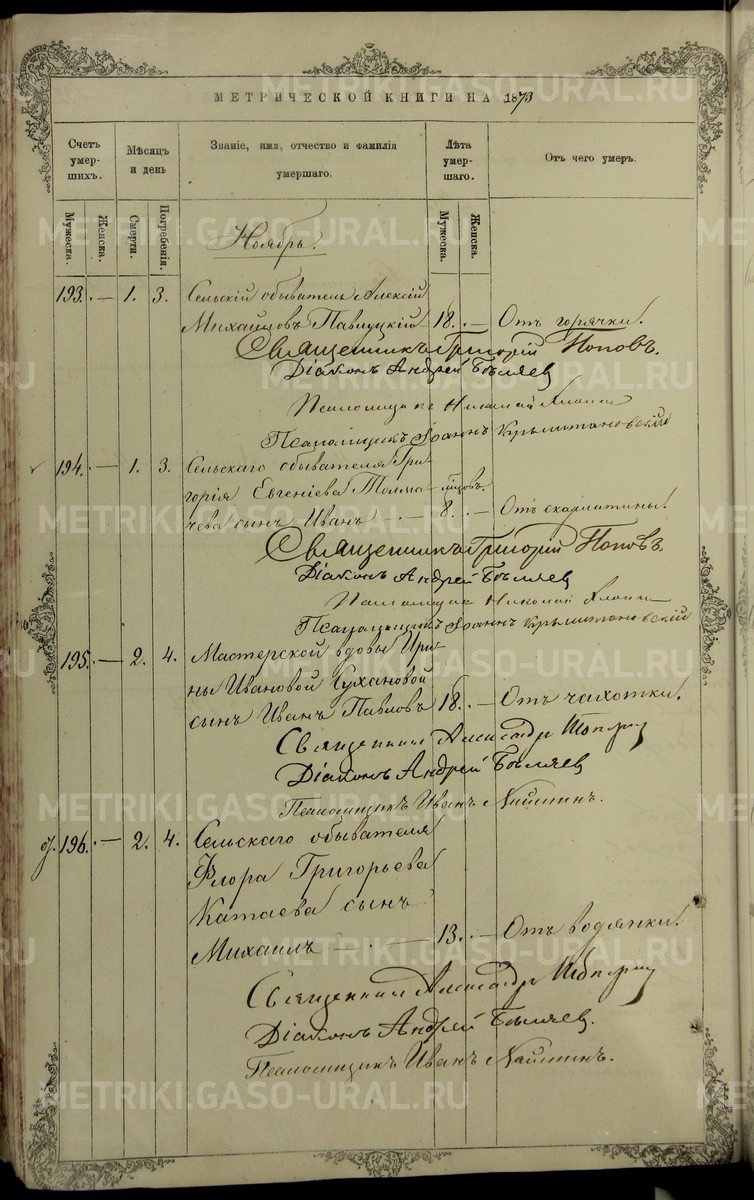 МЕТРИЧЕСКОЙ КНИГИ НА 1873
Счетъ умер- шихъ.
Мѣсяцъ и день
Званіе, имя, отчество и фамилія умершаго.
Лѣта умер- шаго.
Отъ чего умеръ.
Мужеска. Женска. Смерти. Погребенія. Мужеска. Женска.
Ноябрь.
193. — 1. 3. Сельскій обыватель Алексій
Михаиловъ Павлуцкій 18. — Отъ горячки.
Священникъ Григорій Поповъ.
Діаконъ Андрей Бѣляев
Псаломщикъ Николай
Псаломщикъ Іоаннъ
194. — 1. 3. Сельскаго обывателя Гри-
горія Евгеніева Толма-
чева сынъ Иванъ — 8. — Отъ скарлатины.
мѣсяцовъ.
Священникъ Григорій Поповъ.
Діаконъ Андрей Бѣляев
Псаломщикъ Николай
Псаломщикъ Іоаннъ
195. — 2. 4. Мастерской вдовы Ири-
ны Ивановой Сухановой
сынъ Иванъ Павловъ 18. — Отъ чахотки.
Священник Александр
Діаконъ Андрей Бѣляев
Псаломщикъ Иванъ
196. — 2. 4. Сельскаго обывателя
Флора Григорьева
Катаева сынъ
Михаилъ — 13. — Отъ водянки.
Священник Александр
Діаконъ Андрей Бѣляев.
Псаломщикъ Иванъ
METRIKI.GASO-URAL.RU